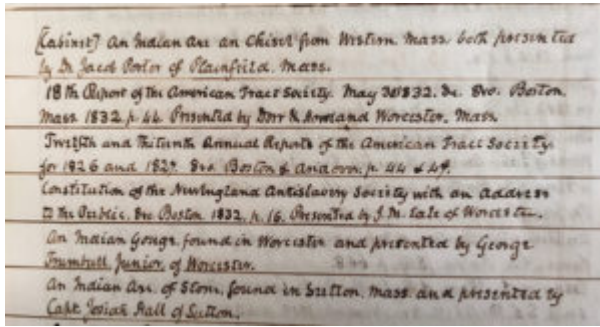 [Cabinet] An Indian Axe an Chisel from Western Mass both presented
by Dr Jacob Porter of Plainfield. Mass.
18th Report of the American Tract Society. May 30 1832. &c. 8vo. Boston.
Mass 1832 p. 44. Presented by Dorr & Howland Worcester. Mass
Twelfth and thirteenth Annual Reports of the American Tract Society.
for 1826 and 1827. 8vo Boston & Andover. p. 44 & 49.
Constitution of the New England Antislavery Society with an Address
to the Public. 8vo Boston. 1832. p. 16. Presented by J. M. of Worcester.
An Indian Gouge, found in Worcester and presented by George
Trumbull Junior, of Worcester.
An Indian Axe, of Stone, found in Sutton. Mass. and presented by
Capt Josiah Hall of Sutton.